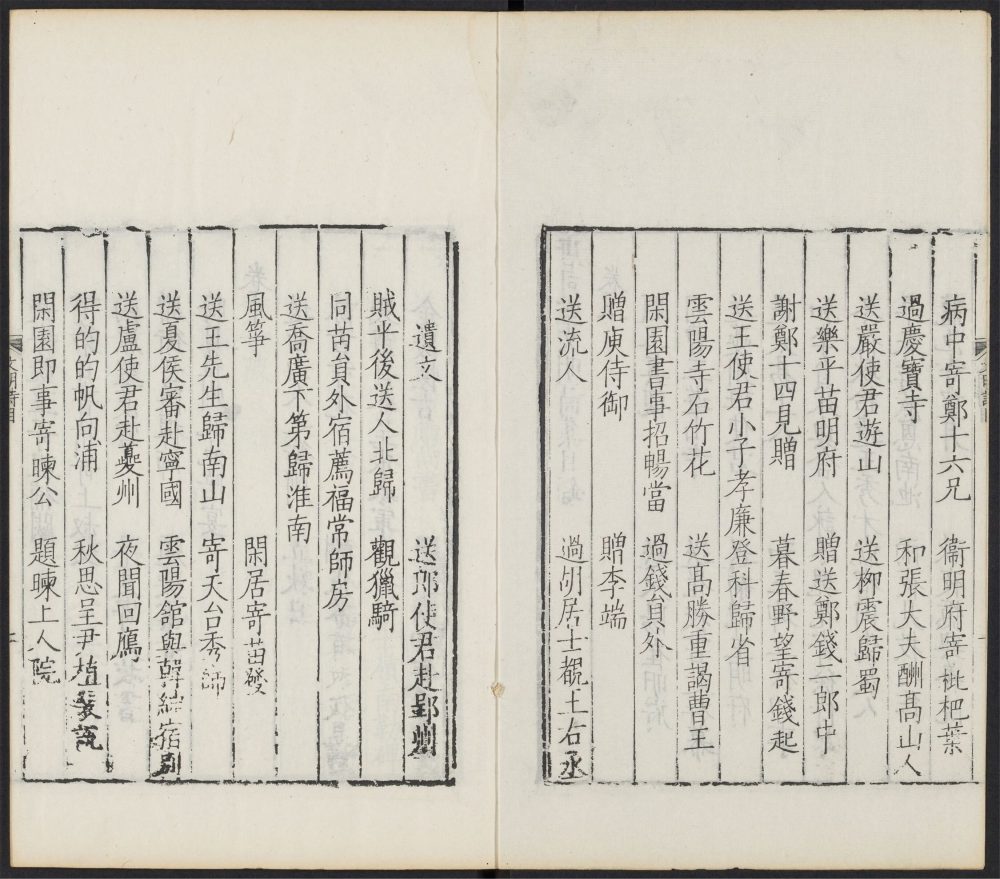 病中寄鄭十六兄 衞明府寄枇杷葉
過慶寶寺 和張大夫酬髙山人
送嚴使君遊山 送柳震歸蜀
送樂平苗明府 贈送鄭錢二郎中
謝鄭十四見贈 暮春野望寄錢起
送王使君小子孝廉登科歸省
雲陽寺石竹花 送髙勝重謁曹王
閑園書事招暢當 過錢負外
贈庾侍御 贈李端
送流人 過胡居士覩王右丞
遺文 送郎使君赴郢州
賊平後送人北歸 觀獵騎
同苗負外宿薦福常師房
送喬廣下第歸淮南
風箏 閑居寄苗發
送王先生歸南山 寄天台秀師
送夏侯審赴寧國 雲陽舘與韓紳宿別
送盧使君赴䕫州 夜聞回鴈
得的的帆向浦 秋思呈尹植裴說
閑園即事寄暕公 題暕上人院
文明詩目